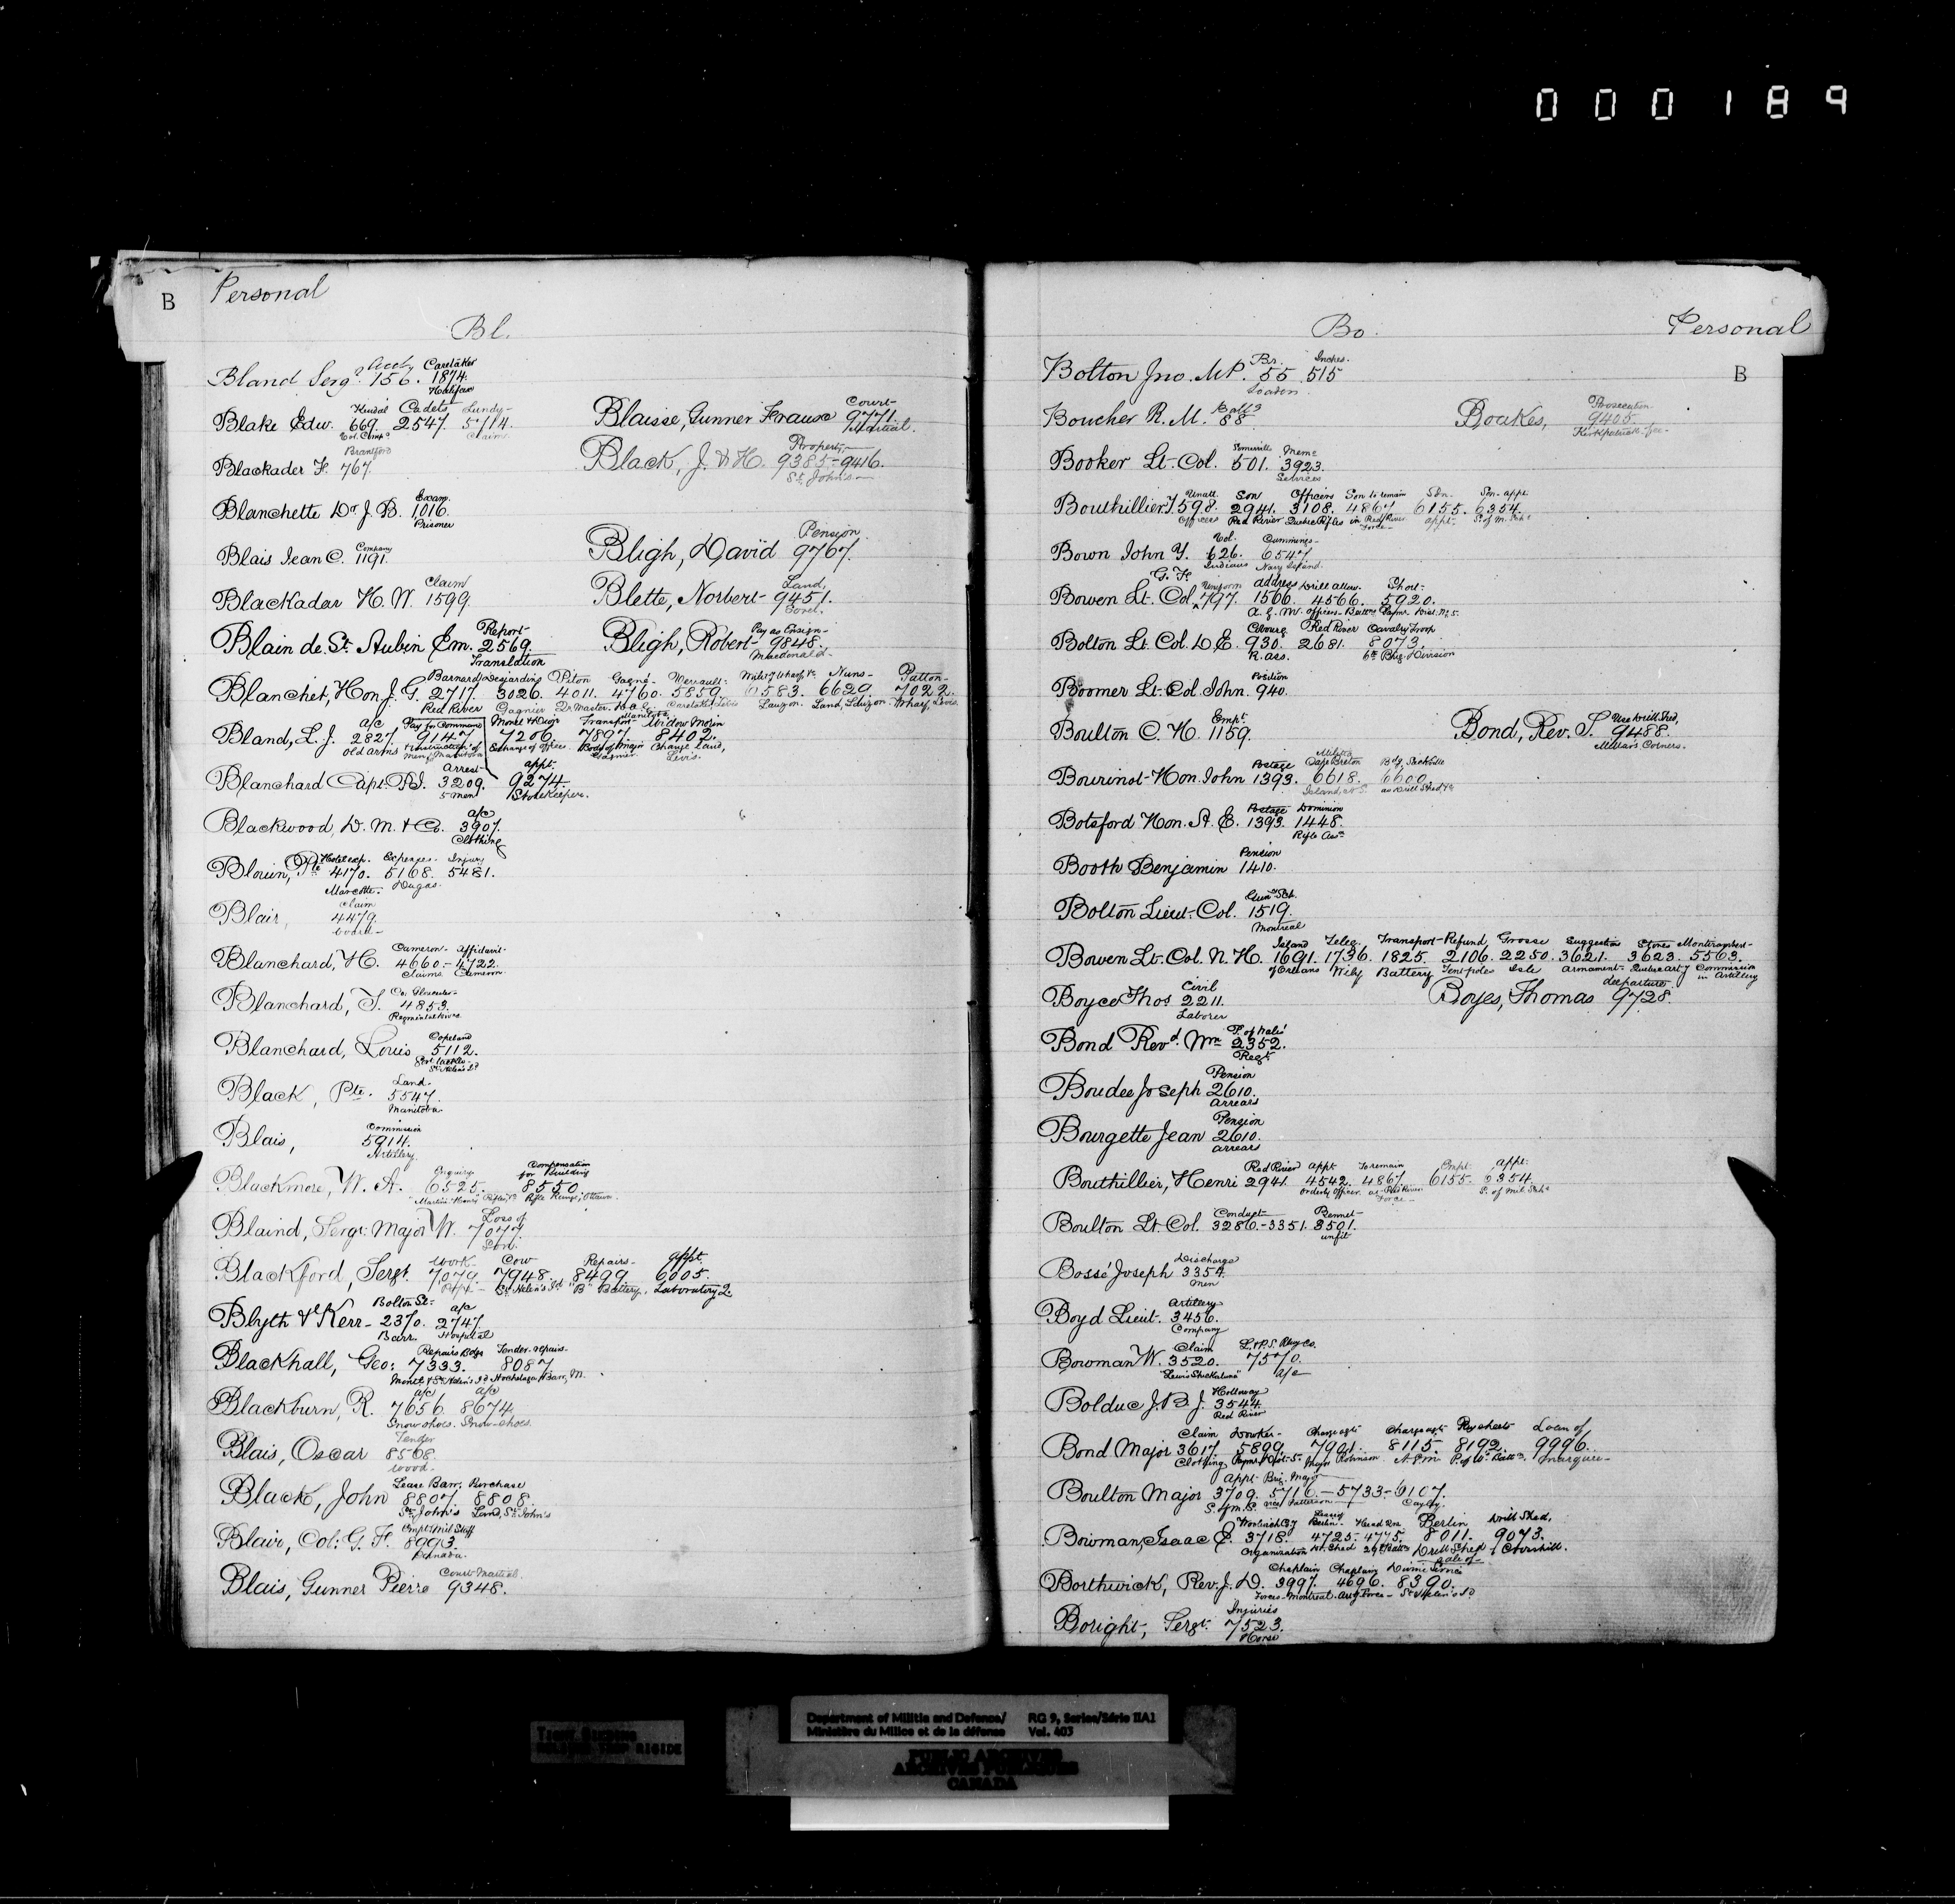 000189
B Personal
Bl.
Bland Sergt 156. 1874.
Caretaker
Halifax
Blake Edw. 669. 2547. 5714.
Cadets Lundy-
Claims
Blackader F. 767.
Brantford
Blanchette Dr J. B. 1016.
Exam.
Prisoner
Blais Jean C. 1191.
Company
Blackadar H. W. 1599.
Claim
Blain de St. Aubin Em. 2569.
Report-
Translation
Blanchet, Hon. J. G. 2717. 3026. 4011. 4760. 5859. 6583. 6629. 7022.
Barnard Desjardins Piton Gagné- Verrault- Nuns- Patton-
Red River Gagnier Caretaker Levis Lauzon. Land, Lauzon. Wharf, Levis.
Bland, L. J. 2827. 9147. 7206. 7897. 8402.
a/c Transport- Widow Morin
old arms Exchange of offices Change land, Levis.
Blanchard Capt. 3209. 9274.
Arrest- appt.
5 men Storekeeper.
Blackwood, D. M. & Co. 3907.
a/c
Clothing
Blouin, Pte 4170. 5168. 5481.
Hotel exp. Expenses- Injury
Marcotte- Dugas-
Blair, 4479.
Claim
Blanchard, H. 4660.- 4722.
Cameron- Affidavit-
Claims. Cameron.
Blanchard, T. 4853.
Co. Gloucester-
Blanchard, Louis 5112.
Copeland
St. Helen's Id
Black, Pte. 5547.
Land.
Manitoba.
Blais, 5914.
Commission
Artillery.
Blackmore, W. A. 6525. 8550.
Enquiry Compensation for Building
"Martini-Henry" Rifles, &c Rifle Range, Ottawa.
Blaind, Sergt. Major W. 7077.
Loss of
Blackford, Sergt. 7079. 7948. 8499. 6005.
Work- Cow Repairs- appt.
St. Helen's Id "B" Battery, Laboratory Q.
Blyth & Kerr- 2370. 2747.
Bolton St- a/c
Barr. Hospital
Blackhall, Geo: 7333. 8087.
Repairs Bdge Tender-repairs-
Montl & St. Helen's Id Hochelaga Barr, M.
Blackburn, R. 7656. 8674.
a/c a/c
Snow shoes. Snow-shoes.
Blais, Oscar 8568.
Tender
Wood.
Black, John 8807. 8808.
Lease Barr. Purchase
St. John's Land, St. John's
Blair, Col: G. F. 8993.
Empt Mil Staff
Canada.
Blais, Gunner Pierre 9348.
Court Martial.
Blaisse, Gunner Frauso 9771.
Court-
Martial.
Black, J. & H. 9385-9416.
Property,
St. John's
Bligh, David 9767.
Pension
Blette, Norbert- 9451.
Land,
Sorel.
Bligh, Robert- 9848.
Pay as Ensign-
Macdonald-
Bo. Personal
B
Bolton Jno. M.P. 55. 515
Inches.
Boucher R. M. 88
Batt.
Boakes, 9405.
Prosecution
Kirkpatrick fee-
Booker Lt-Col. 501. 3923.
Somerville Meme
Services
Bouthillier T. 598. 2941. 3108. 4867. 6155. 6354.
Unatt. Son Officers Son to remain Son- Son-appt
Officers Red River Quebec Rifles in Red River Force- appt- S. of M. Schl
Bown John Y. 626. 6547.
Vol. Cummings-
Indians Navy Island.
Bowen Lt. Col. G. F. 797. 1566. 4566. 5920.
Uniform address Drill allow. Short-
Bolton Lt Col. D. E. 930. 2681. 8073.
Cobourg Red River Cavalry Troop
R. ass. 6th Brig. Division
Boomer Lt-Col John. 940.
Position
Boulton C. H. 1159.
Empt
Bond, Rev. S. 9488.
Use Drill Shed,
Millar's Corners.
Bourinot- Hon. John 1393. 6618. 6600.
Postage Militia Cape Breton Bdg Sackville
Island, N.S. as Drill Shed &c
Botsford Hon. A. E. 1393. 1448.
Postage Dominion
Rifle Assn
Booth Benjamin 1410.
Pension
Bolton Lieut.-Col. 1519.
Gun Sch.
Montreal
Bowen Lt-Col. N. H. 1691. 1736. 1825. 2106. 2250. 3621. 3623. 5563.
Island Teleg. Transport- Refund, Grosse Suggestion Stores Montizambert-
of Orleans Wily Battery Tent poles Isle Armament- Quebec Arty Commission in Artillery
Boyce Thos 2211.
Civil
Laborer
Boyes, Thomas 9728.
departure
Bond Revd. Wm 2352.
P. of Wales'
Regt.
Boudee Joseph 2610.
Pension
arrears
Bourgette Jean 2610.
Pension
arrears
Bouthillier, Henri 2941. 4542. 4867. 6155. 6354.
Red River appt To remain Empt. appt.
Orderly Officer. as Red River Force- S. of Mil. Schl
Boulton Lt. Col. 3286.-3351. 3501.
Conduct- Bennet-
unfit
Bossé Joseph 3354.
Discharge
Men
Boyd Lieut. 3456.
Artillery
Company
Bowman W. 3520. 7570.
Claim L. & P.S. Rlwy Co.
a/c
Bolduc J. B. J. 3544.
Holloway
Red River
Bond Major 3617. 5899. 7901. 8115. 8192. 9996.
Claim Dowker- Charge agst Charge agst Pay sheets Loan of
Clothing Major Robinson A.P.M. P. of W. Battn. marquee-
Boulton Major 3709. 5716.-5733-6107.
appt- Brig. Major
vice Patterson Cayley.
Bowman, Isaac E. 3718. 4725- 4775. 8011. 9073.
Woolwich Cy Lease of Berlin- Head Qrs Berlin Drill Shed,
Organization Dl. Shed 29th Battn Drill Shed
Borthwick, Rev. J. D. 3997. 4696. 8390.
Chaplain Chaplain Divine Service
Forces-Montreal. St. Helen's Id
Boright, Sergt. 7523.
Injuries
Horse
Department of Militia and Defence/ RG 9, Series/Série IIA1
Ministère du Milice et de la défense Vol. 403
PUBLIC ARCHIVES
ARCHIVES PUBLIQUES
CANADA